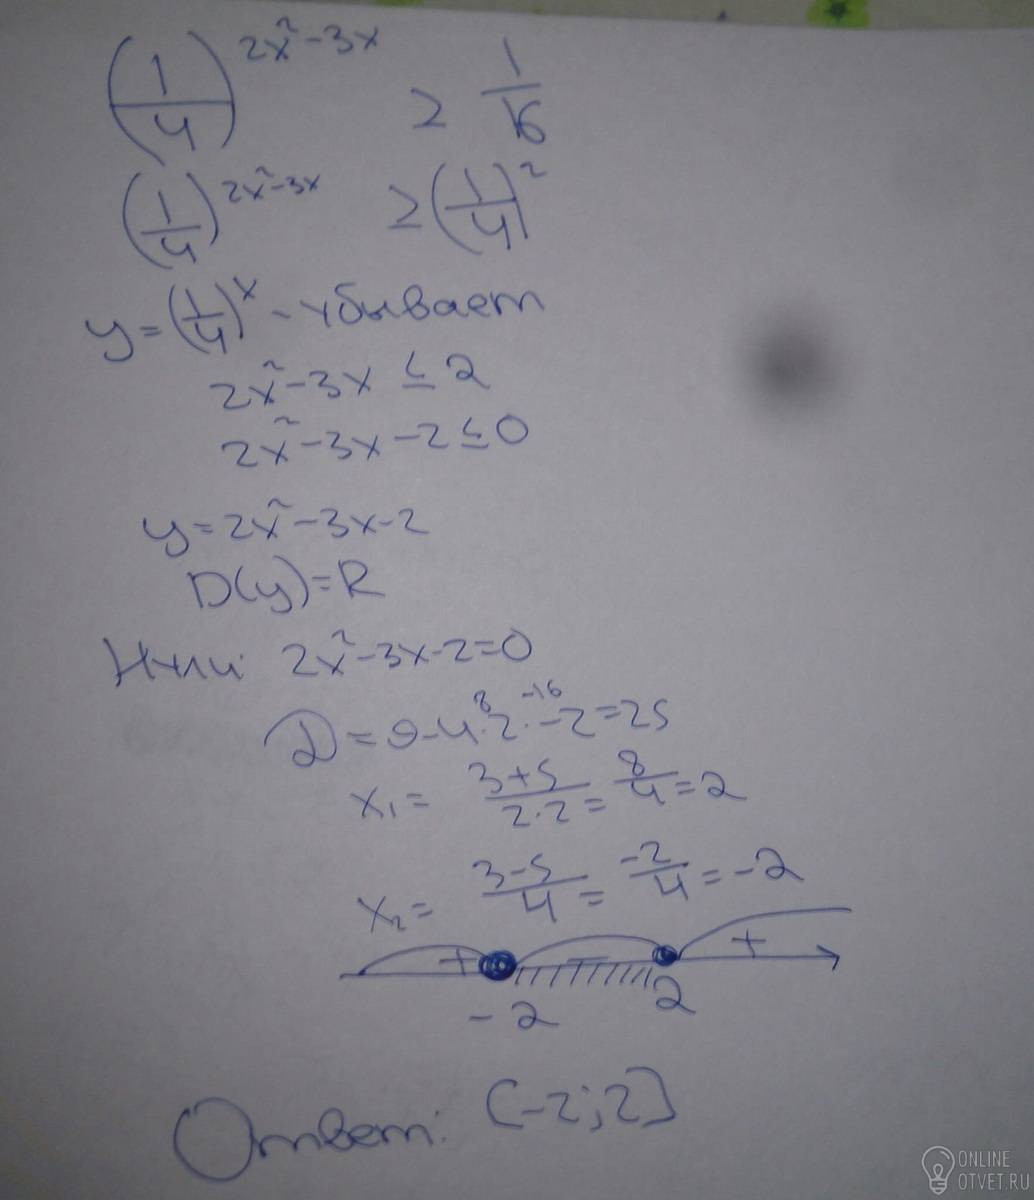 (1/4)^(2x²-3x) ≥ 1/16
(1/4)^(2x²-3x) ≥ (1/4)²
y = (1/4)^x - убывает
2x²-3x ≤ 2
2x²-3x-2 ≤ 0
y = 2x²-3x-2
D(y)=R
Нули: 2x²-3x-2=0
8 -16
D = 9-4·2·-2=25
x₁ = (3+5)/(2·2) = 8/4 = 2
x₂ = (3-5)/4 = -2/4 = -2
+ - +
-2 2
Ответ: [-2;2]
ONLINE
OTVET.RU